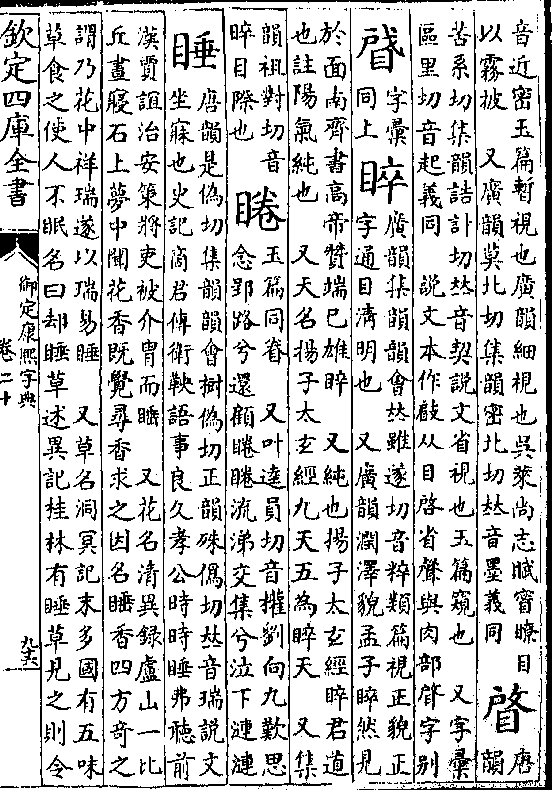 音近密玉篇暫視也廣韻細視也吳萊尚志賦賓瞭目
以霧披　又廣韻莫北切集韻密北切𠀤音墨義同　䁈　唐韻
苦系切集韻詰計切𠀤音契說文省視也玉篇窺也　又字彙
區里切音起義同　說文本作䁈从目啓省聲與肉部䏿字別
䁈　字彙同上　睟　廣韻集韻韻會𠀤雖遂切音粹類篇視正貌正字通目清明也　又廣韻潤澤貌孟子睟然見
於面南齊書高帝贊端己雄睟　又純也揚子太玄經睟君道
也註陽氣純也　又天名揚子太玄經九天五為睟天　又集
韻祖對切音晬目際也　睠　玉篇同眷　又叶逵員切音權劉向九歎思念郢路兮還顧睠睠流涕交集兮泣下漣漣
睡　唐韻是偽切集韻韻會樹偽切正韻殊偽切𠀤音瑞說文坐寐也史記商君傳衛鞅語事良久孝公時時睡弗聽前
漢賈誼治安策將吏被介冑而睡　又花名清異錄廬山一比
丘晝寢石上夢中聞花香既覺尋香求之因名睡香四方奇之
謂乃花中祥瑞遂以瑞易睡　又草名洞冥記末多國有五味
草食之使人不眠名曰却睡草述異記桂林有睡草見之則令
欽定四庫全書
御定康熙字典
卷二十
九六